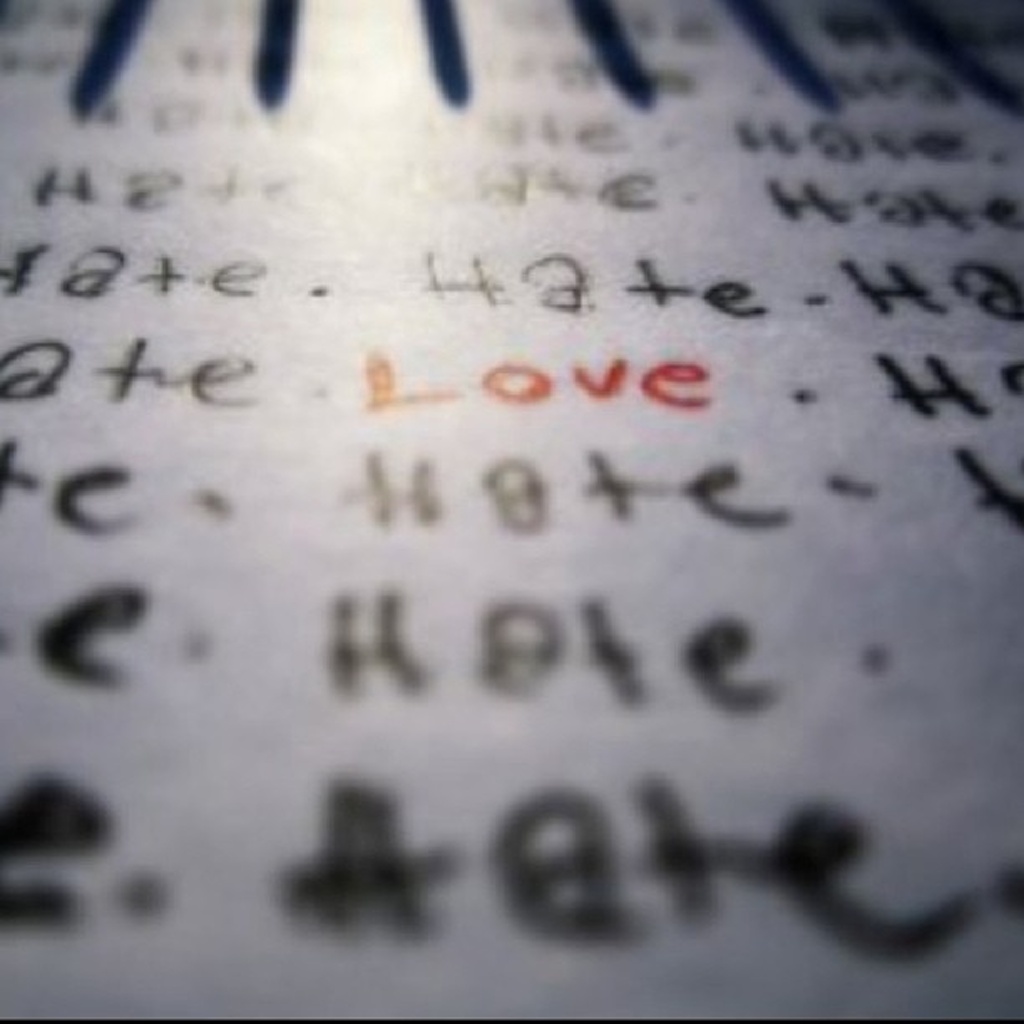 Hate.
Hate. Hate
Hate. Hate. Ha
ate. Love. Ha
te. Hate.
e. Hate.
e. Hate.